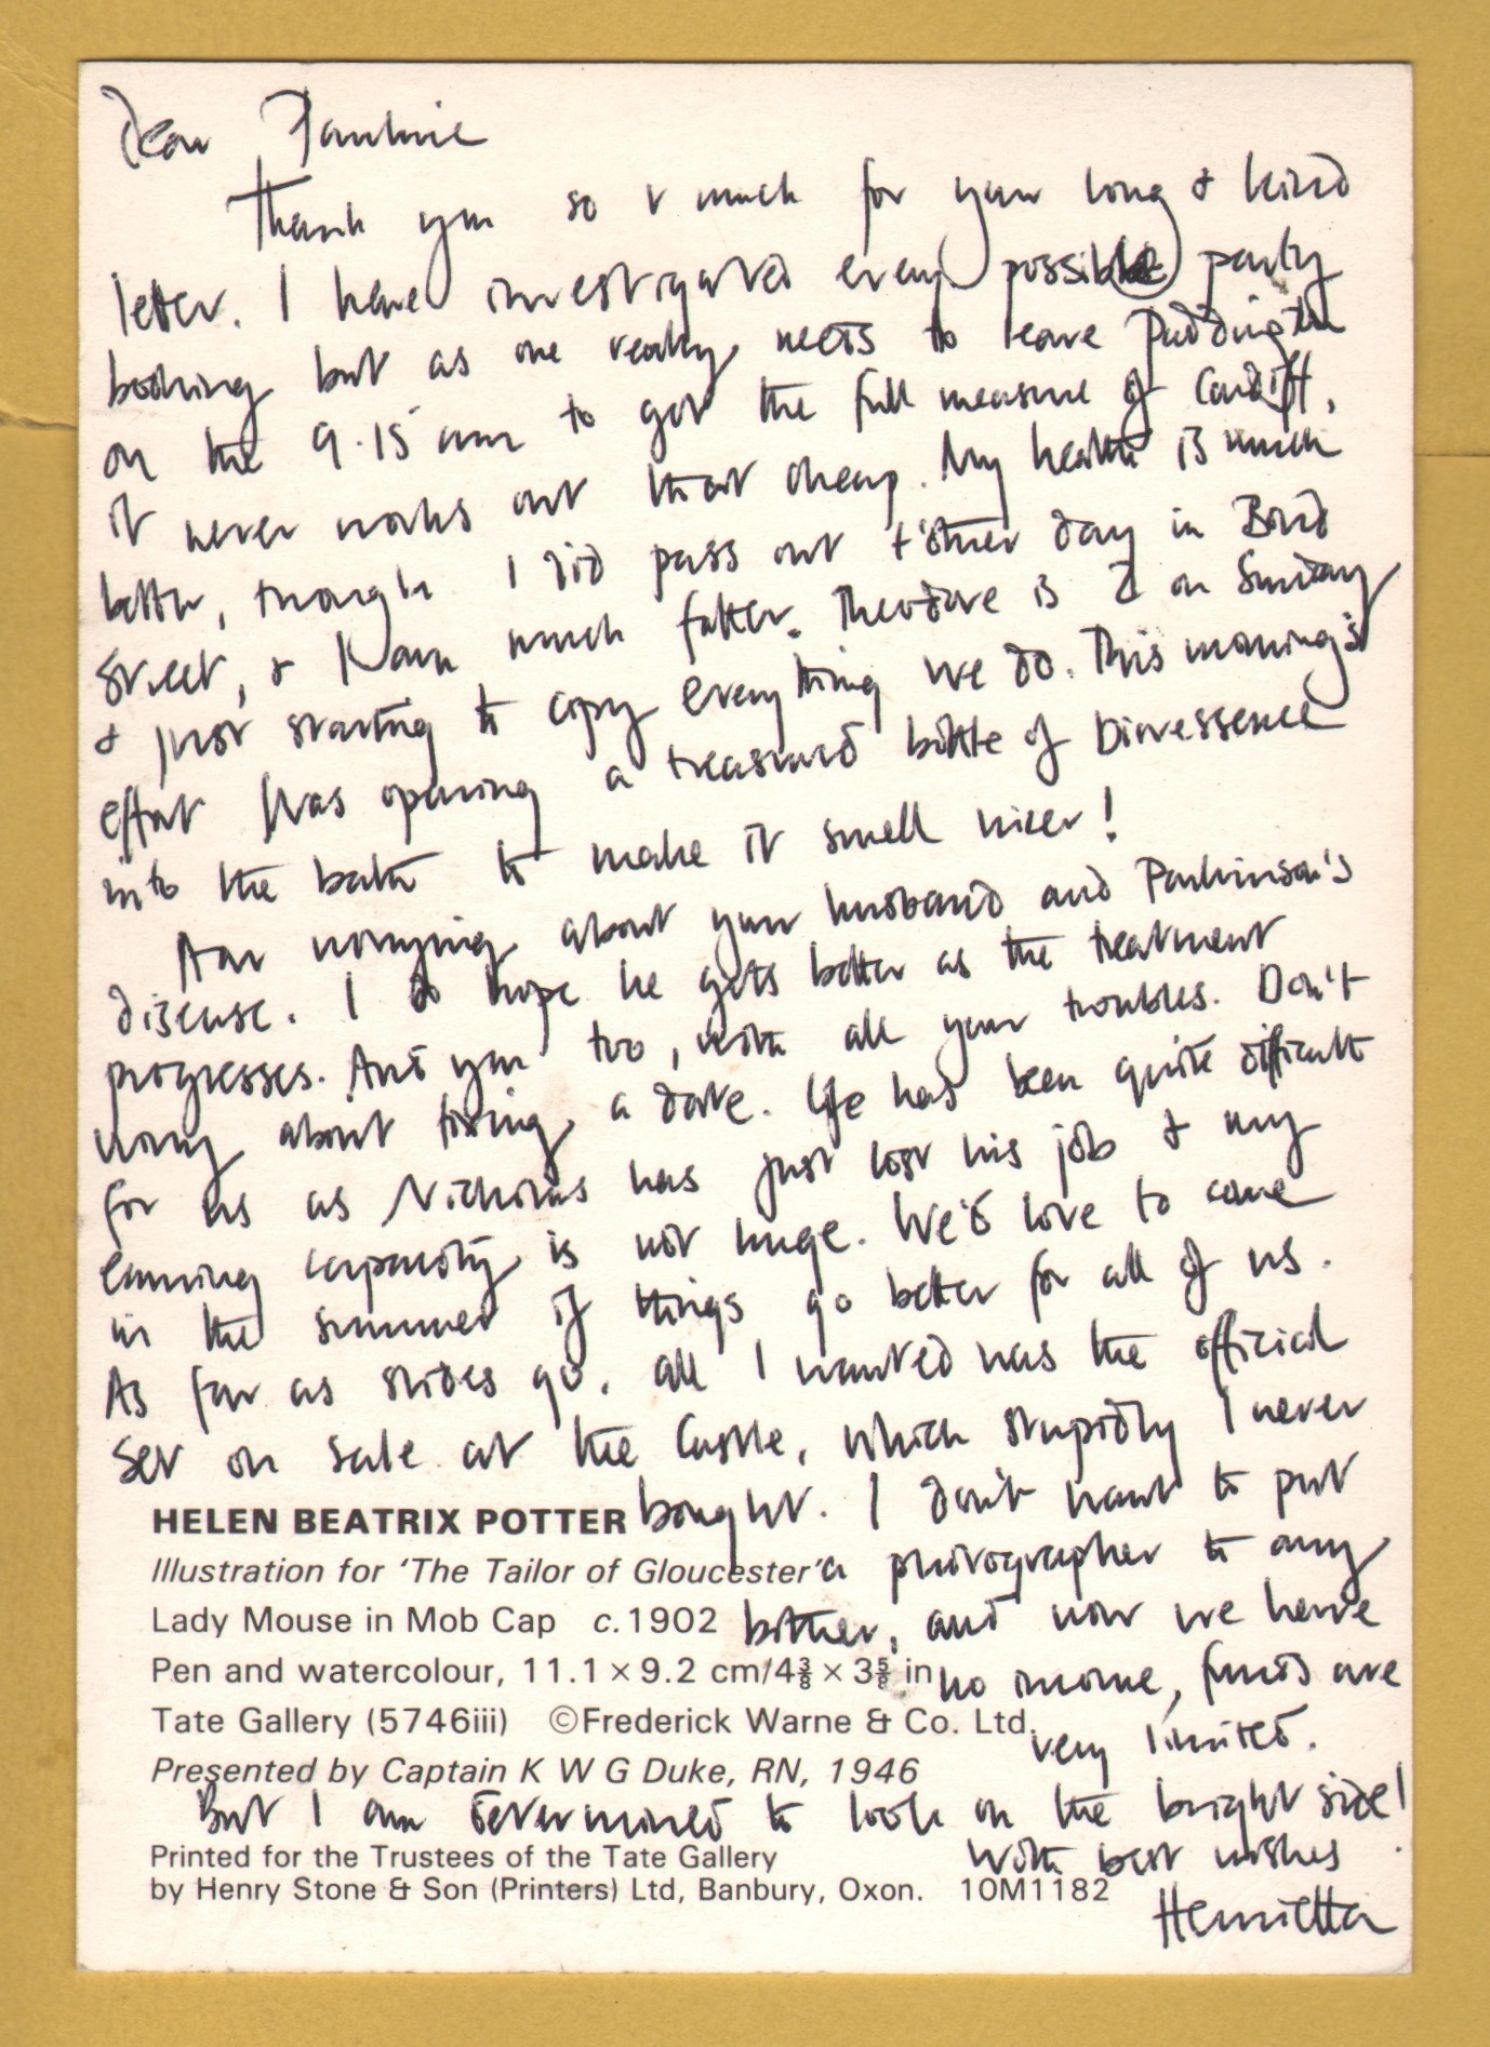 Dear Pauline
Thank you so v much for your long & kind
letter. I have investigated every possible party
booking but as one really needs to leave Paddington
on the 9.15 am to get the full measure of Cardiff,
it never works out that cheap. My health is much
better, though I did pass out t'other day in Bond
Street, & I am much fatter. Theodore is 2 on Sunday
& just starting to copy everything we do. This morning's
effort was opening a treasured bottle of Dioressence
into the bath to make it smell nicer!
Am worrying about your husband and Parkinson's
disease. I do hope he gets better as the treatment
progresses. And you too, with all your troubles. Don't
worry about fixing a date. Life has been quite difficult
for us as Nicholas has just lost his job & my
earning capacity is not huge. We'd love to come
in the summer if things go better for all of us.
As far as slides go, all I wanted was the official
set on sale at the Castle, which stupidly I never
bought. I don't want to put
HELEN BEATRIX POTTER
a photographer to any
Illustration for 'The Tailor of Gloucester'
bother, and now we have
Lady Mouse in Mob Cap c.1902
no income, funds are
Pen and watercolour, 11.1 × 9.2 cm/4⅜ × 3⅝ in
very limited.
Tate Gallery (5746iii) ©Frederick Warne & Co. Ltd.
Presented by Captain K W G Duke, RN, 1946
But I am determined to look on the bright side!
With best wishes
Printed for the Trustees of the Tate Gallery
by Henry Stone & Son (Printers) Ltd, Banbury, Oxon. 10M1182
Henrietta